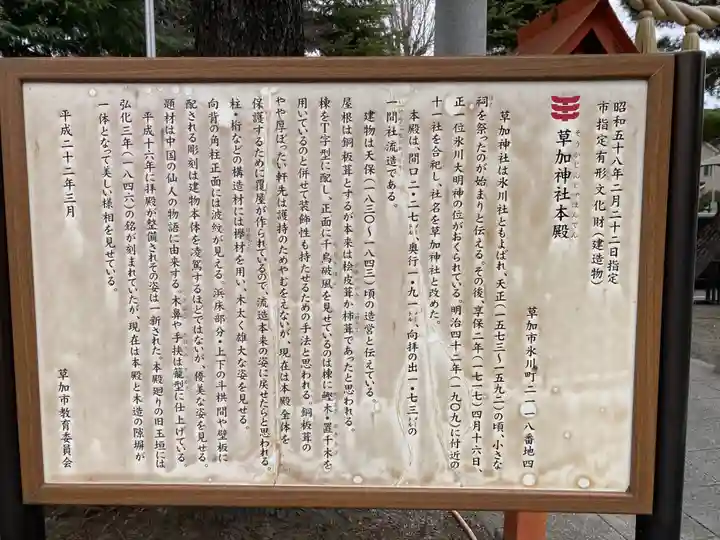 昭和五十八年二月二十二日指定
市指定有形文化財(建造物)
そうかじんじゃほんでん
草加神社本殿
草加市氷川町二一一八番地四
草加神社は氷川社ともよばれ、天正(一五七三~一五九二)の頃、小さな
祠を祭ったのが始まりと伝える。その後、享保二年(一七一七)四月十六日、
正一位氷川大明神の位がおくられている。明治四十二年(一九〇九)に付近の
十一社を合祀し、社名を草加神社と改めた。
本殿は、間口二・二七㍍、奥行一・九一㍍、向拝の出一・七三㍍の
一間社流造である。
建物は天保(一八三〇~一八四三)頃の造営と伝えている。
屋根は銅板葺とするが本来は桧皮葺か柿葺であったと思われる。
棟をT字型に配し、正面に千鳥破風を見せているのは棟に鰹木・置千木を
用いているのと併せて装飾性も持たせるための手法と思われる。銅板葺の
やや厚ぼったい軒先は護持のためやむをえないが、現在は本殿全体を
保護するために覆屋が作られているので、流造本来の姿に戻せたらと思われる。
柱・桁などの構造材には欅材を用い、木太く雄大な姿を見せる。
向背の角柱正面には波紋が見える。浜床部分・上下の斗栱間や壁板に
配される彫刻は建物本体を凌駕するほどではないが、優美な姿を見せる。
題材は中国の仙人の物語に由来する。木鼻や手挟は籠型に仕上げている。
平成十六年に拝殿が整備されその姿は一新された。本殿廻りの旧玉垣には
弘化三年(一八四六)の銘が刻まれていたが、現在は本殿と木造の隙塀が
一体となって美しい様相を見せている。
平成二十二年三月
草加市教育委員会